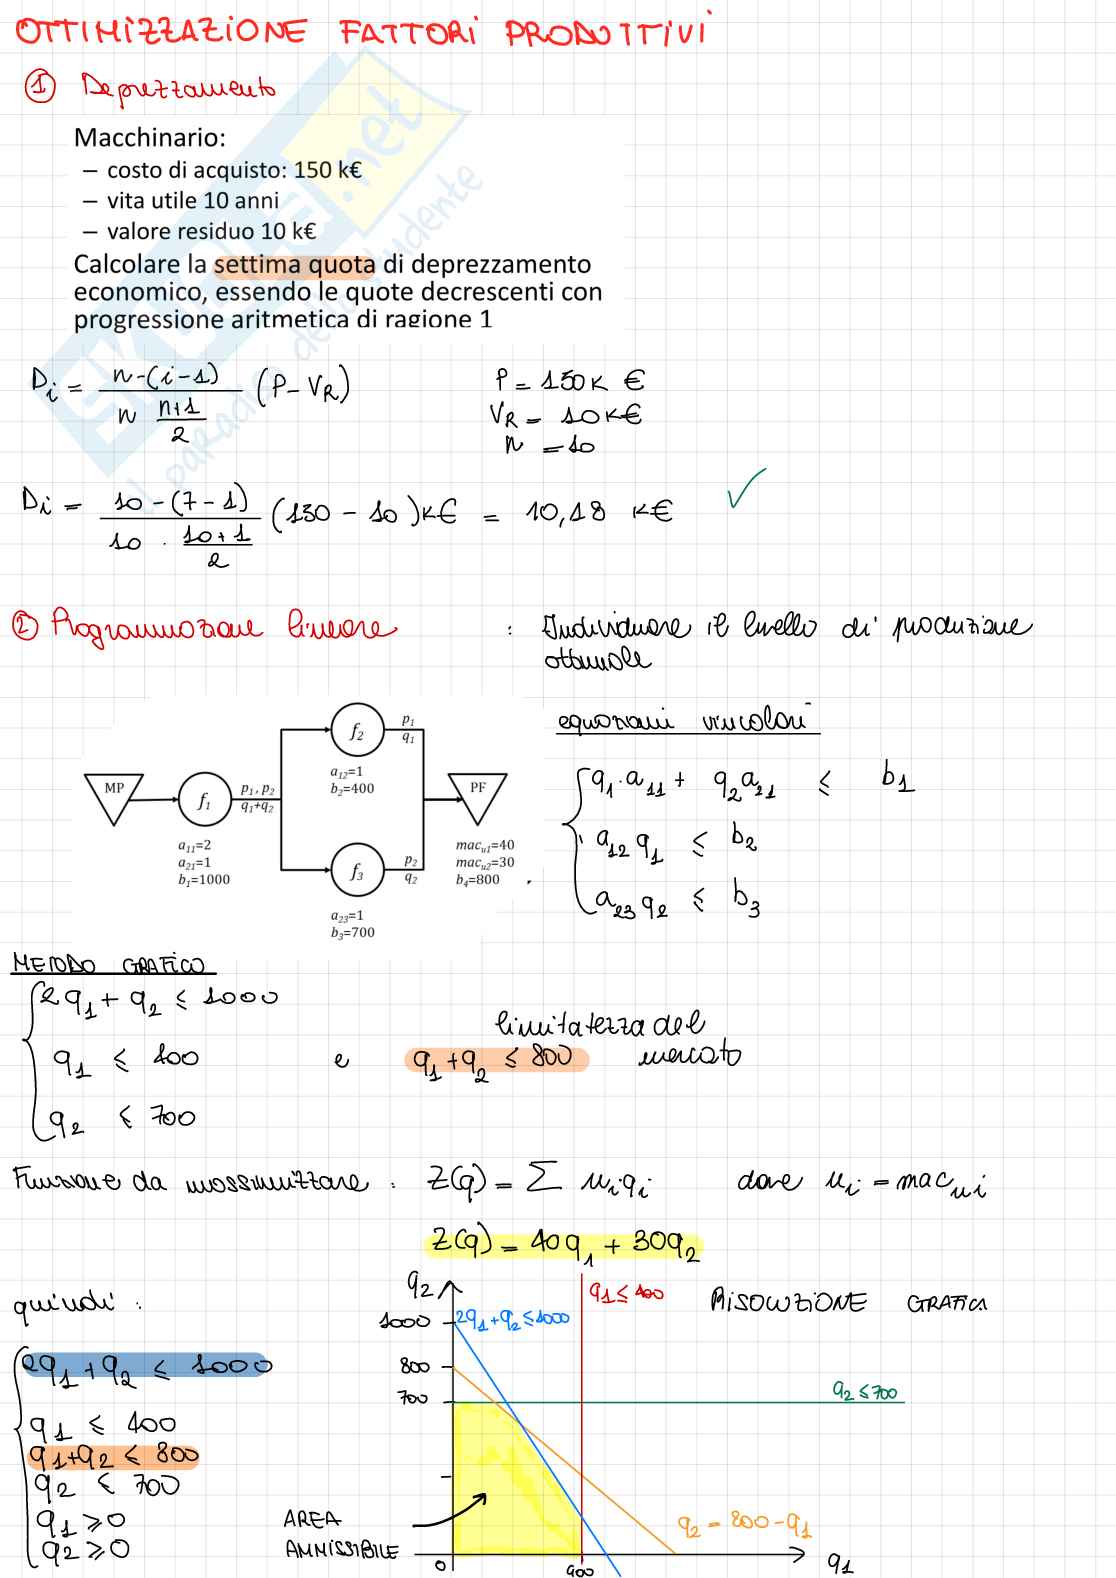 OTTIMIZZAZIONE FATTORI PRODUTTIVI
① Deprezzamento
Macchinario:
– costo di acquisto: 150 k€
– vita utile 10 anni
– valore residuo 10 k€
Calcolare la settima quota di deprezzamento
economico, essendo le quote decrescenti con
progressione aritmetica di ragione 1
SKUOLA.net
Di = n-(i-1) / (n (n+1)/2) (P-VR)
P = 150K €
VR = 10K€
n = 10
Di = 10-(7-1) / (10 · (10+1)/2) (150 - 10)K€ = 10,18 K€ ✓
② Programmazione lineare : Individuare il livello di produzione
ottimale
equazioni vincolari
q1·a11 + q2a21 ≤ b1
a12 q1 ≤ b2
a23 q2 ≤ b3
MP
f1
p1, p2
q1+q2
a11=2
a21=1
b1=1000
f2
p1
q1
a12=1
b2=400
f3
p2
q2
a23=1
b3=700
PF
macu1=40
macu2=30
b4=800
METODO GRAFICO
2q1 + q2 ≤ 1000
q1 ≤ 400 e q1+q2 ≤ 800 limitatezza del mercato
q2 ≤ 700
Funzione da massimizzare : Z(q) = Σ uiqi dove ui = macui
Z(q) = 40q1 + 30q2
quindi :
2q1 + q2 ≤ 1000
q1 ≤ 400
q1+q2 ≤ 800
q2 ≤ 700
q1 ≥ 0
q2 ≥ 0
RISOLUZIONE GRAFICA
q2
1000
800
700
2q1+q2 ≤ 1000
q1 ≤ 400
q2 ≤ 700
q2 = 800 - q1
AREA
AMMISSIBILE
0
400
q1